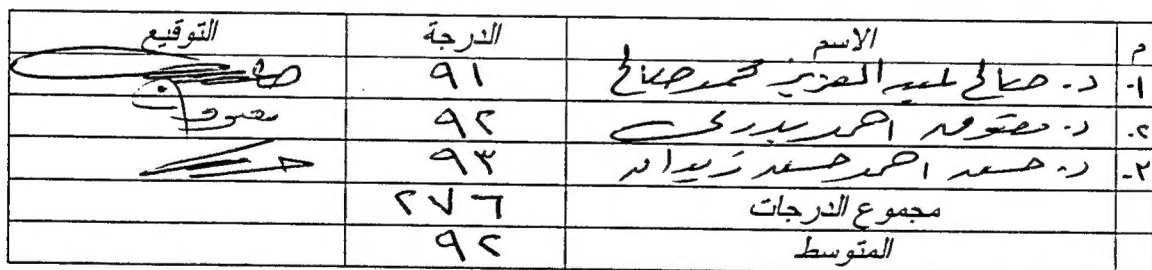 م الاسم الدرجة التوقيع
١- د. صالح عبد العزيز محمد صالح ٩١ صالح
٢- د. معتوق احمد بدري ٩٢ معتوق
٣- د. حسن احمد حسن زيدان ٩٣
مجموع الدرجات ٢٧٦
المتوسط ٩٢